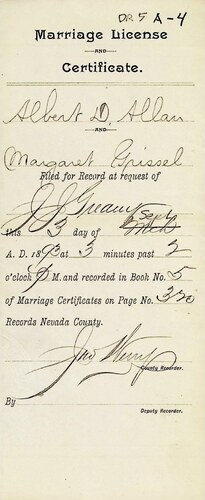 DR 5 A-4
Marriage License
AND
Certificate.
Albert D. Allan
AND
Margaret Grissel
Filed for Record at request of
this 3 day of Sept
A. D. 1893 at 3 minutes past 2
o'clock P M. and recorded in Book No. 5
of Marriage Certificates on Page No. 320
Records Nevada County.
County Recorder.
By
Deputy Recorder.